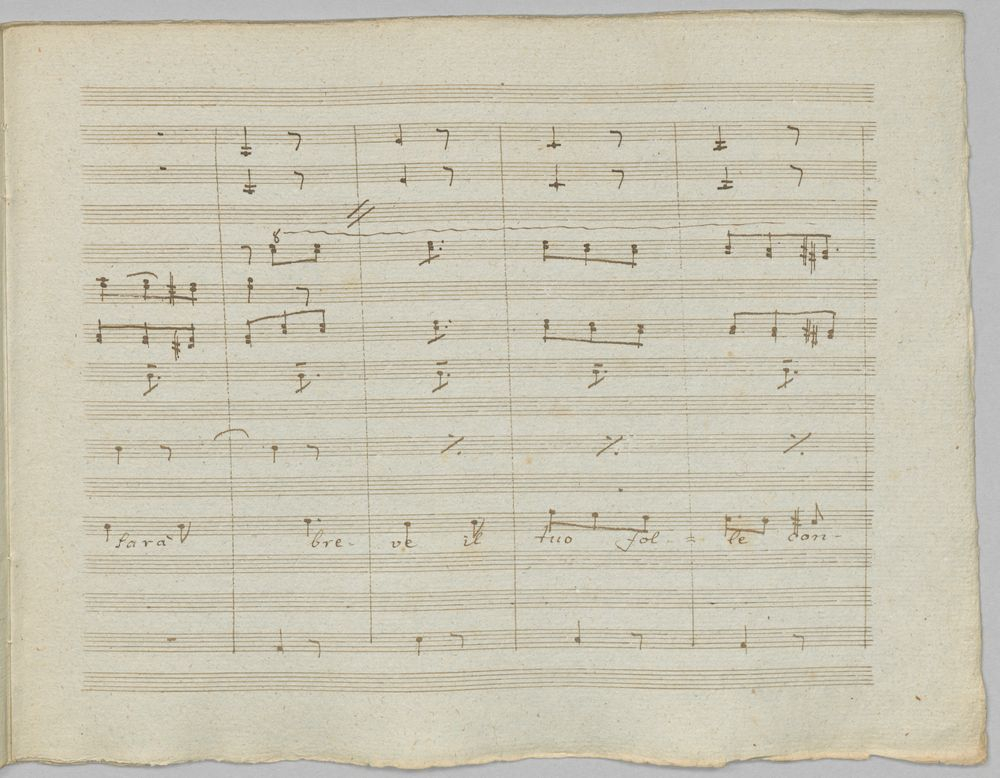 8
Sarà bre- ve il tuo fol- = le con-